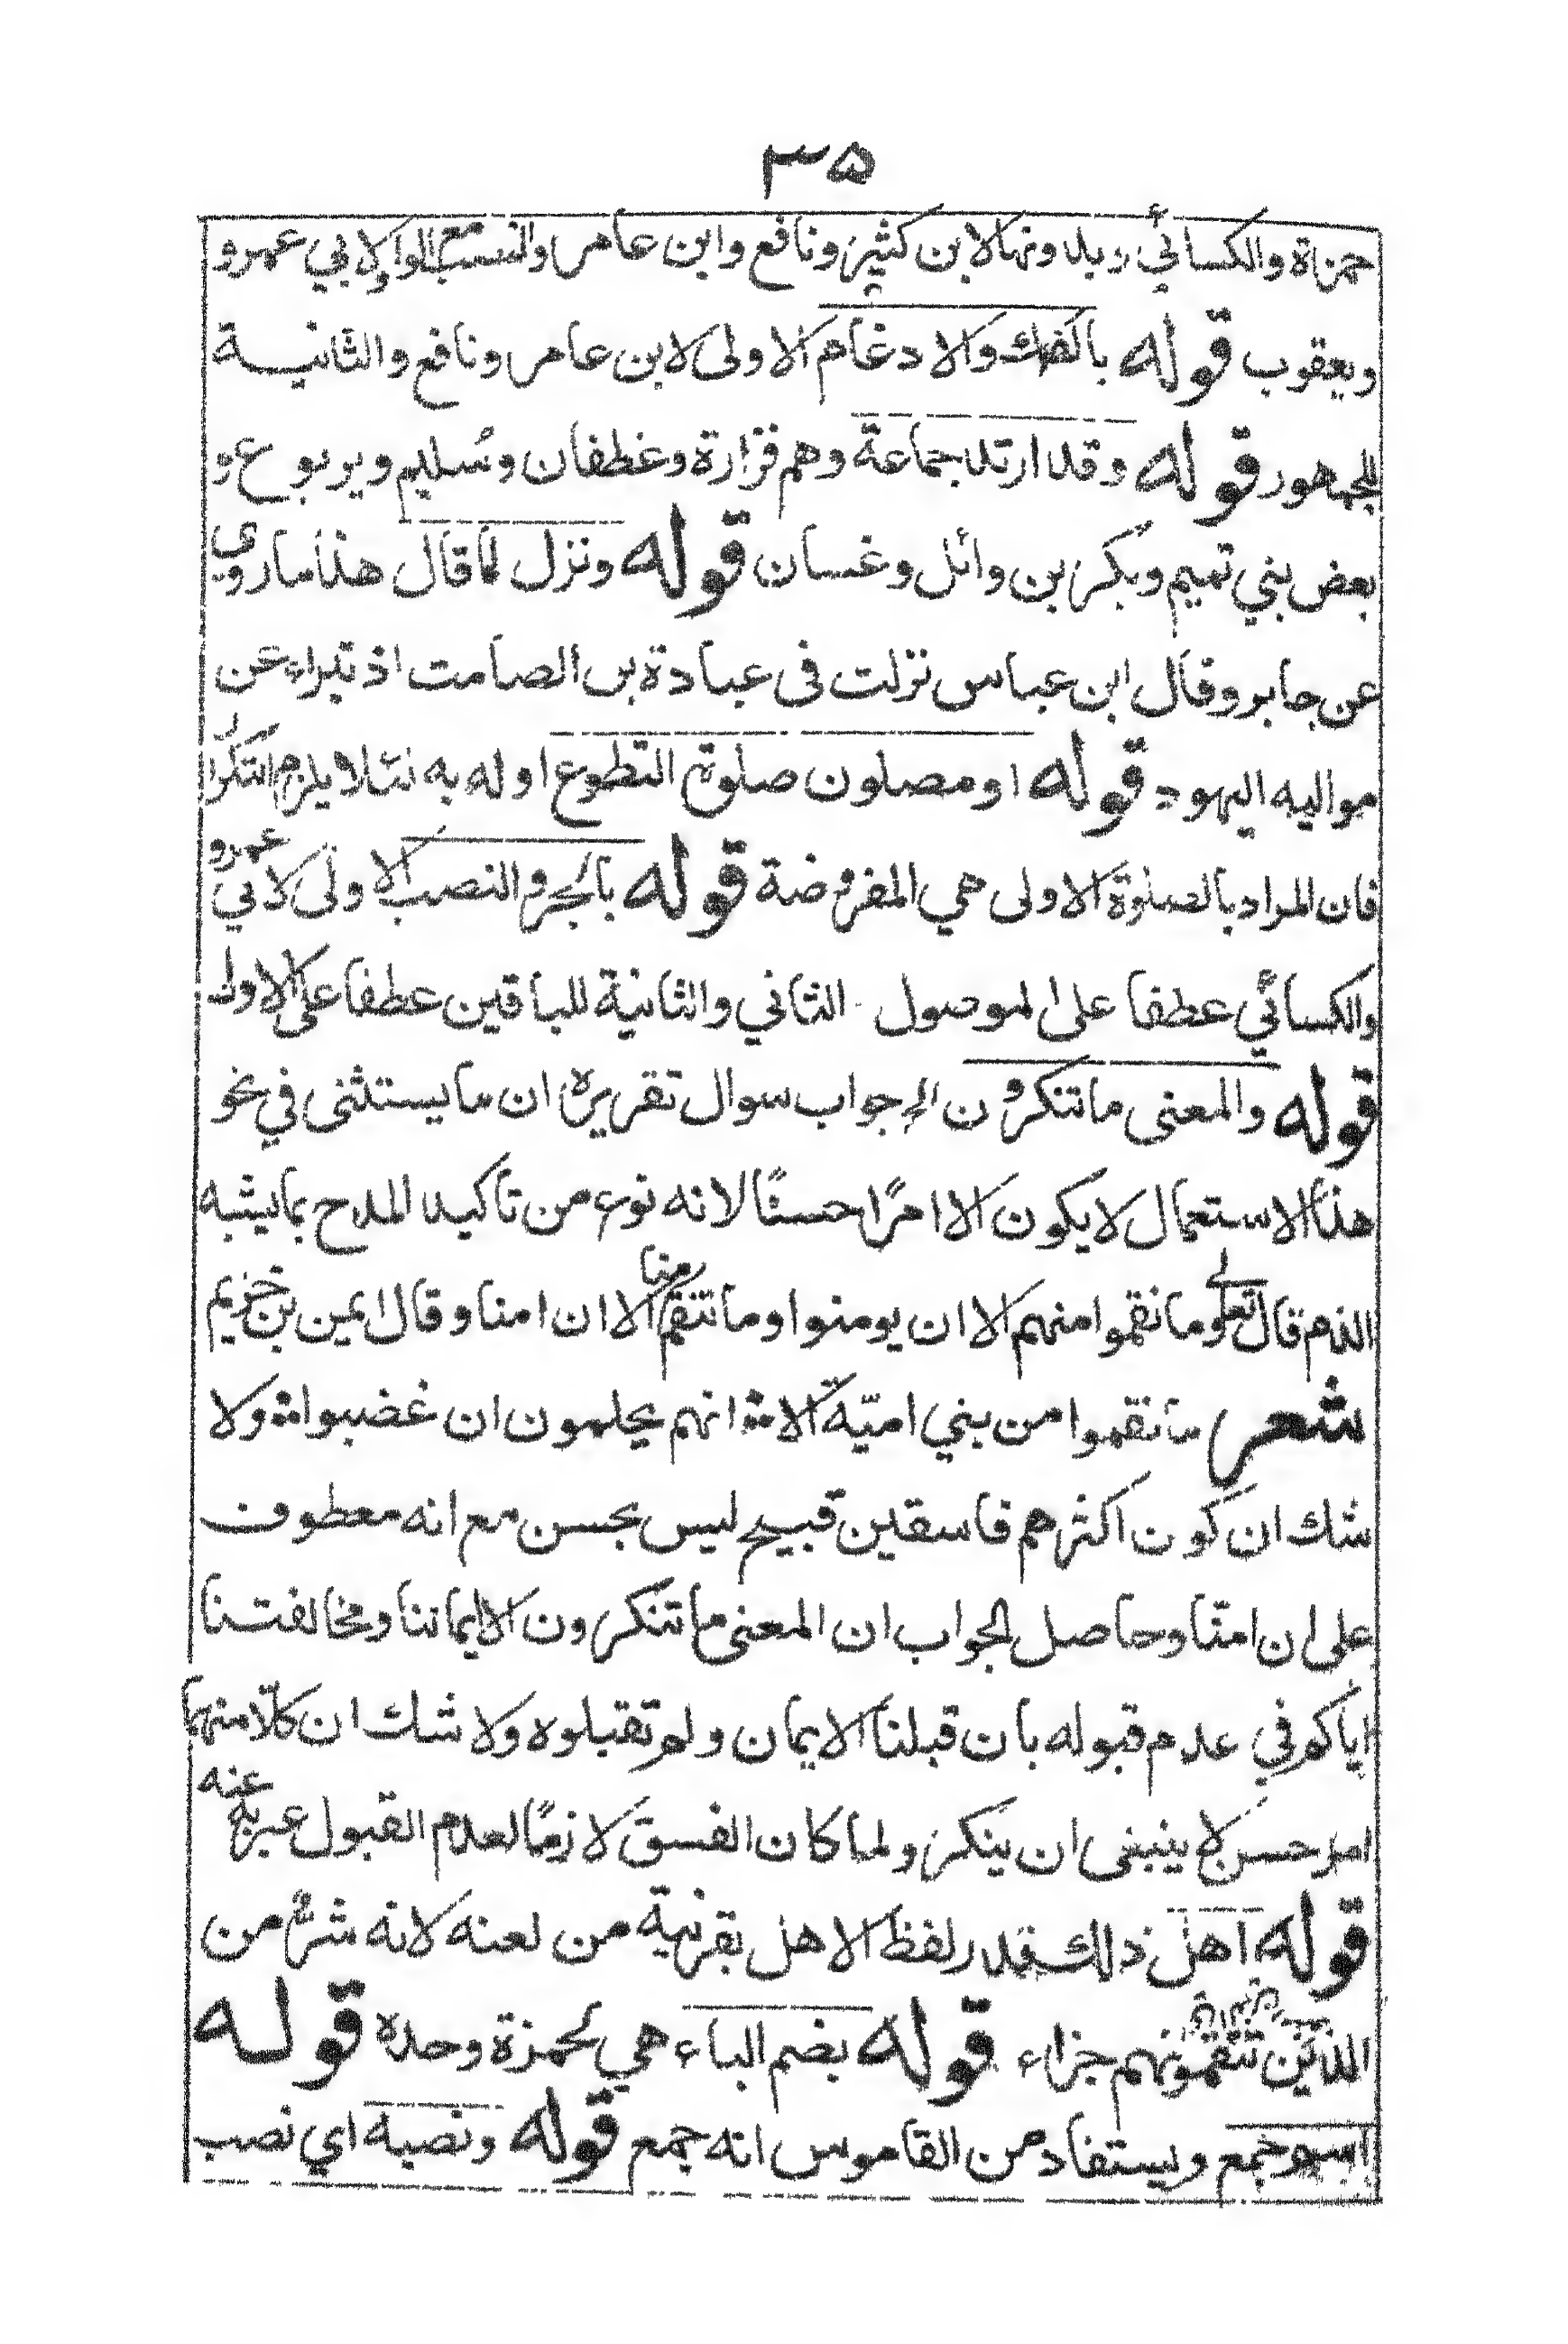 ٣٥
حمزة والكسائي وبدونها لابن كثير ونافع وابن عامر والنصب مع الواو لابي عمرو
ويعقوب قوله بالفك والادغام الاولى لابن عامر ونافع والثانية
للجمهور قوله وقد ارتد جماعة وهم فزارة وغطفان وسُليم ويربوع و
بعض بني تميم وبكر بن وائل وغسان قوله ونزل لما قال هذا ما روي
عن جابر وقال ابن عباس نزلت فى عبادة بن الصامت اذ تبراء عن
مواليه اليهود قوله او مصلون صلوة التطوع اوله به لئلا يلزم التكرار
فان المراد بالصلوة الاولى هي المفروضة قوله بالجر والنصب الاولى لابي عمرو
والكسائي عطفا على الموصول الثاني والثانية للباقين عطفا على الاول
قوله والمعنى ما تنكرون الخ جواب سوال تقريره ان ما يستثنى في نحو
هذا الاستعمال لا يكون الا امرًا حسنًا لانه نوع من تاكيد المدح بما يشبه
الذم قال تعالى وما نقموا منهم الا ان يومنوا وما تنقم منا الا ان امنا وقال ايمن بن خزيم
شعر ما نقموا من بني اميّة الا ۞ انهم يحلمون ان غضبوا ۞ ولا
شك ان كون اكثرهم فاسقين قبيح ليس بحسن مع انه معطوف
على ان امنّا وحاصل الجواب ان المعنى ما تنكرون الا ايماننا ومخالفتنا
اياكم في عدم قبوله بان قبلنا الايمان ولم تقبلوه ولا شك ان كلّا منهما
امر حسن لا ينبغى ان ينكر ولما كان الفسق لازمًا لعدم القبول عبر به عنه
قوله اهل ذلك قدر لفظ الاهل بقرنية من لعنه لانه شرٌّ من
الذين تنقمونهم جزاء قوله بضم الباء هي لحمزة وحده قوله
اسم جمع ويستفاد من القاموس انه جمع قوله ونصبه اي نصب